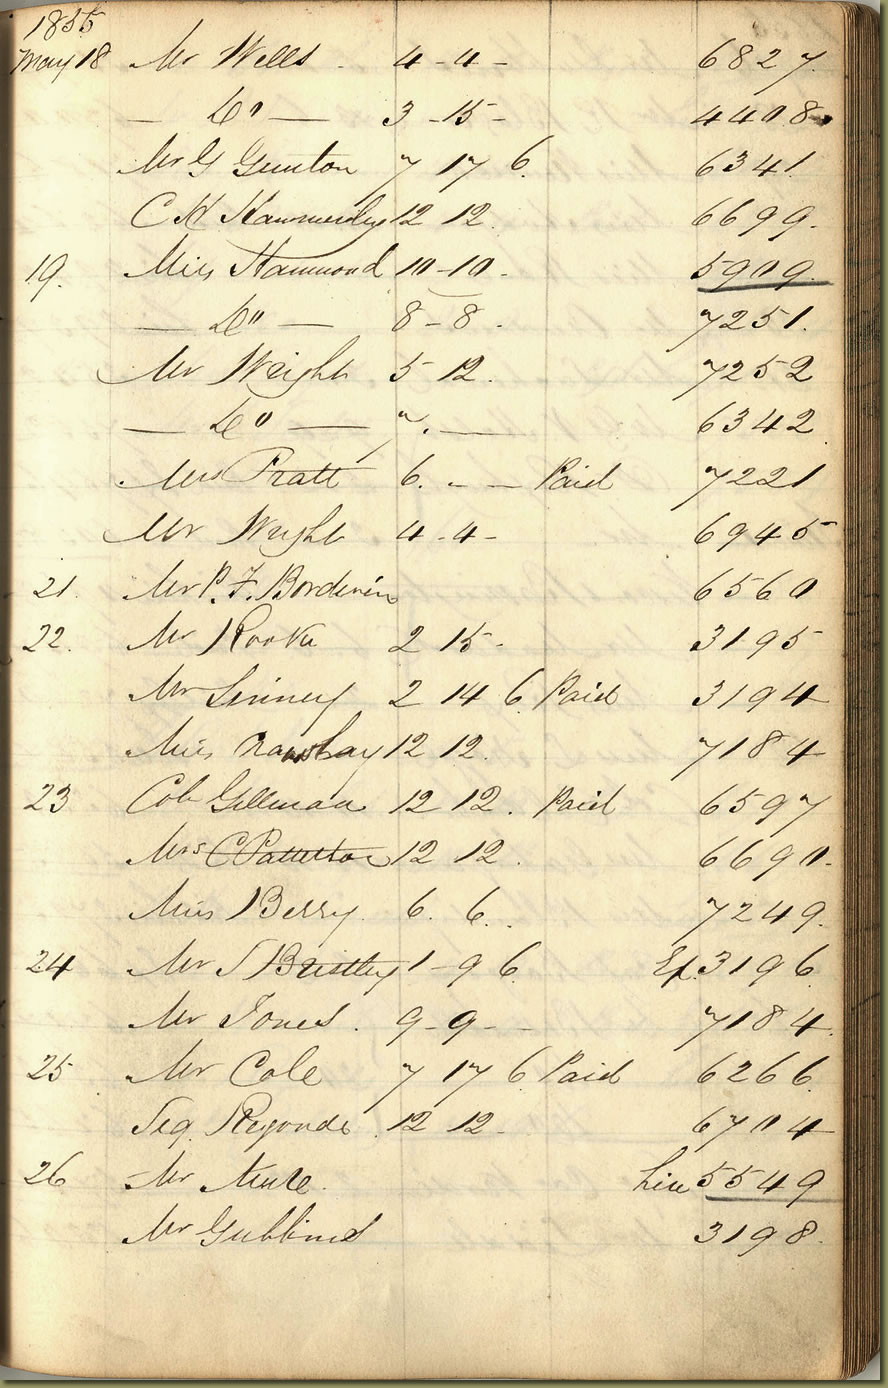 1855
May 18 Mr Wells 4-4- 6827
— Do — 3-15- 4408
Mr G Gunton 7 17 6. 6341
C K 12 12. 6699.
19. Miss Hammond 10-10- 5909.
— Do — 8-8. 7251.
Mr Wright 5 12. 7252
— Do — 7.— 6342
Mrs Pratt 6. - - Paid 7221
Mr Wright 4-4- 6945
21. Mr P. F. 6560
22. Mr Rooke 2 15- 3195
Mr Linney 2 14 6 Paid 3194
Miss 12 12. 7184
23 Col Gillman 12 12. Paid 6597
Mrs C 12 12. 6690.
Miss Berry. 6. 6. 7249.
24 Mr S 1-9 6. Ex. 3196
Mr Jones. 9-9- 7184
25 Mr Cole 7 17 6 Paid 6266
Sig. Regondi 12 12. 6704
26 Mr 5549
Mr Gubbins 3198.